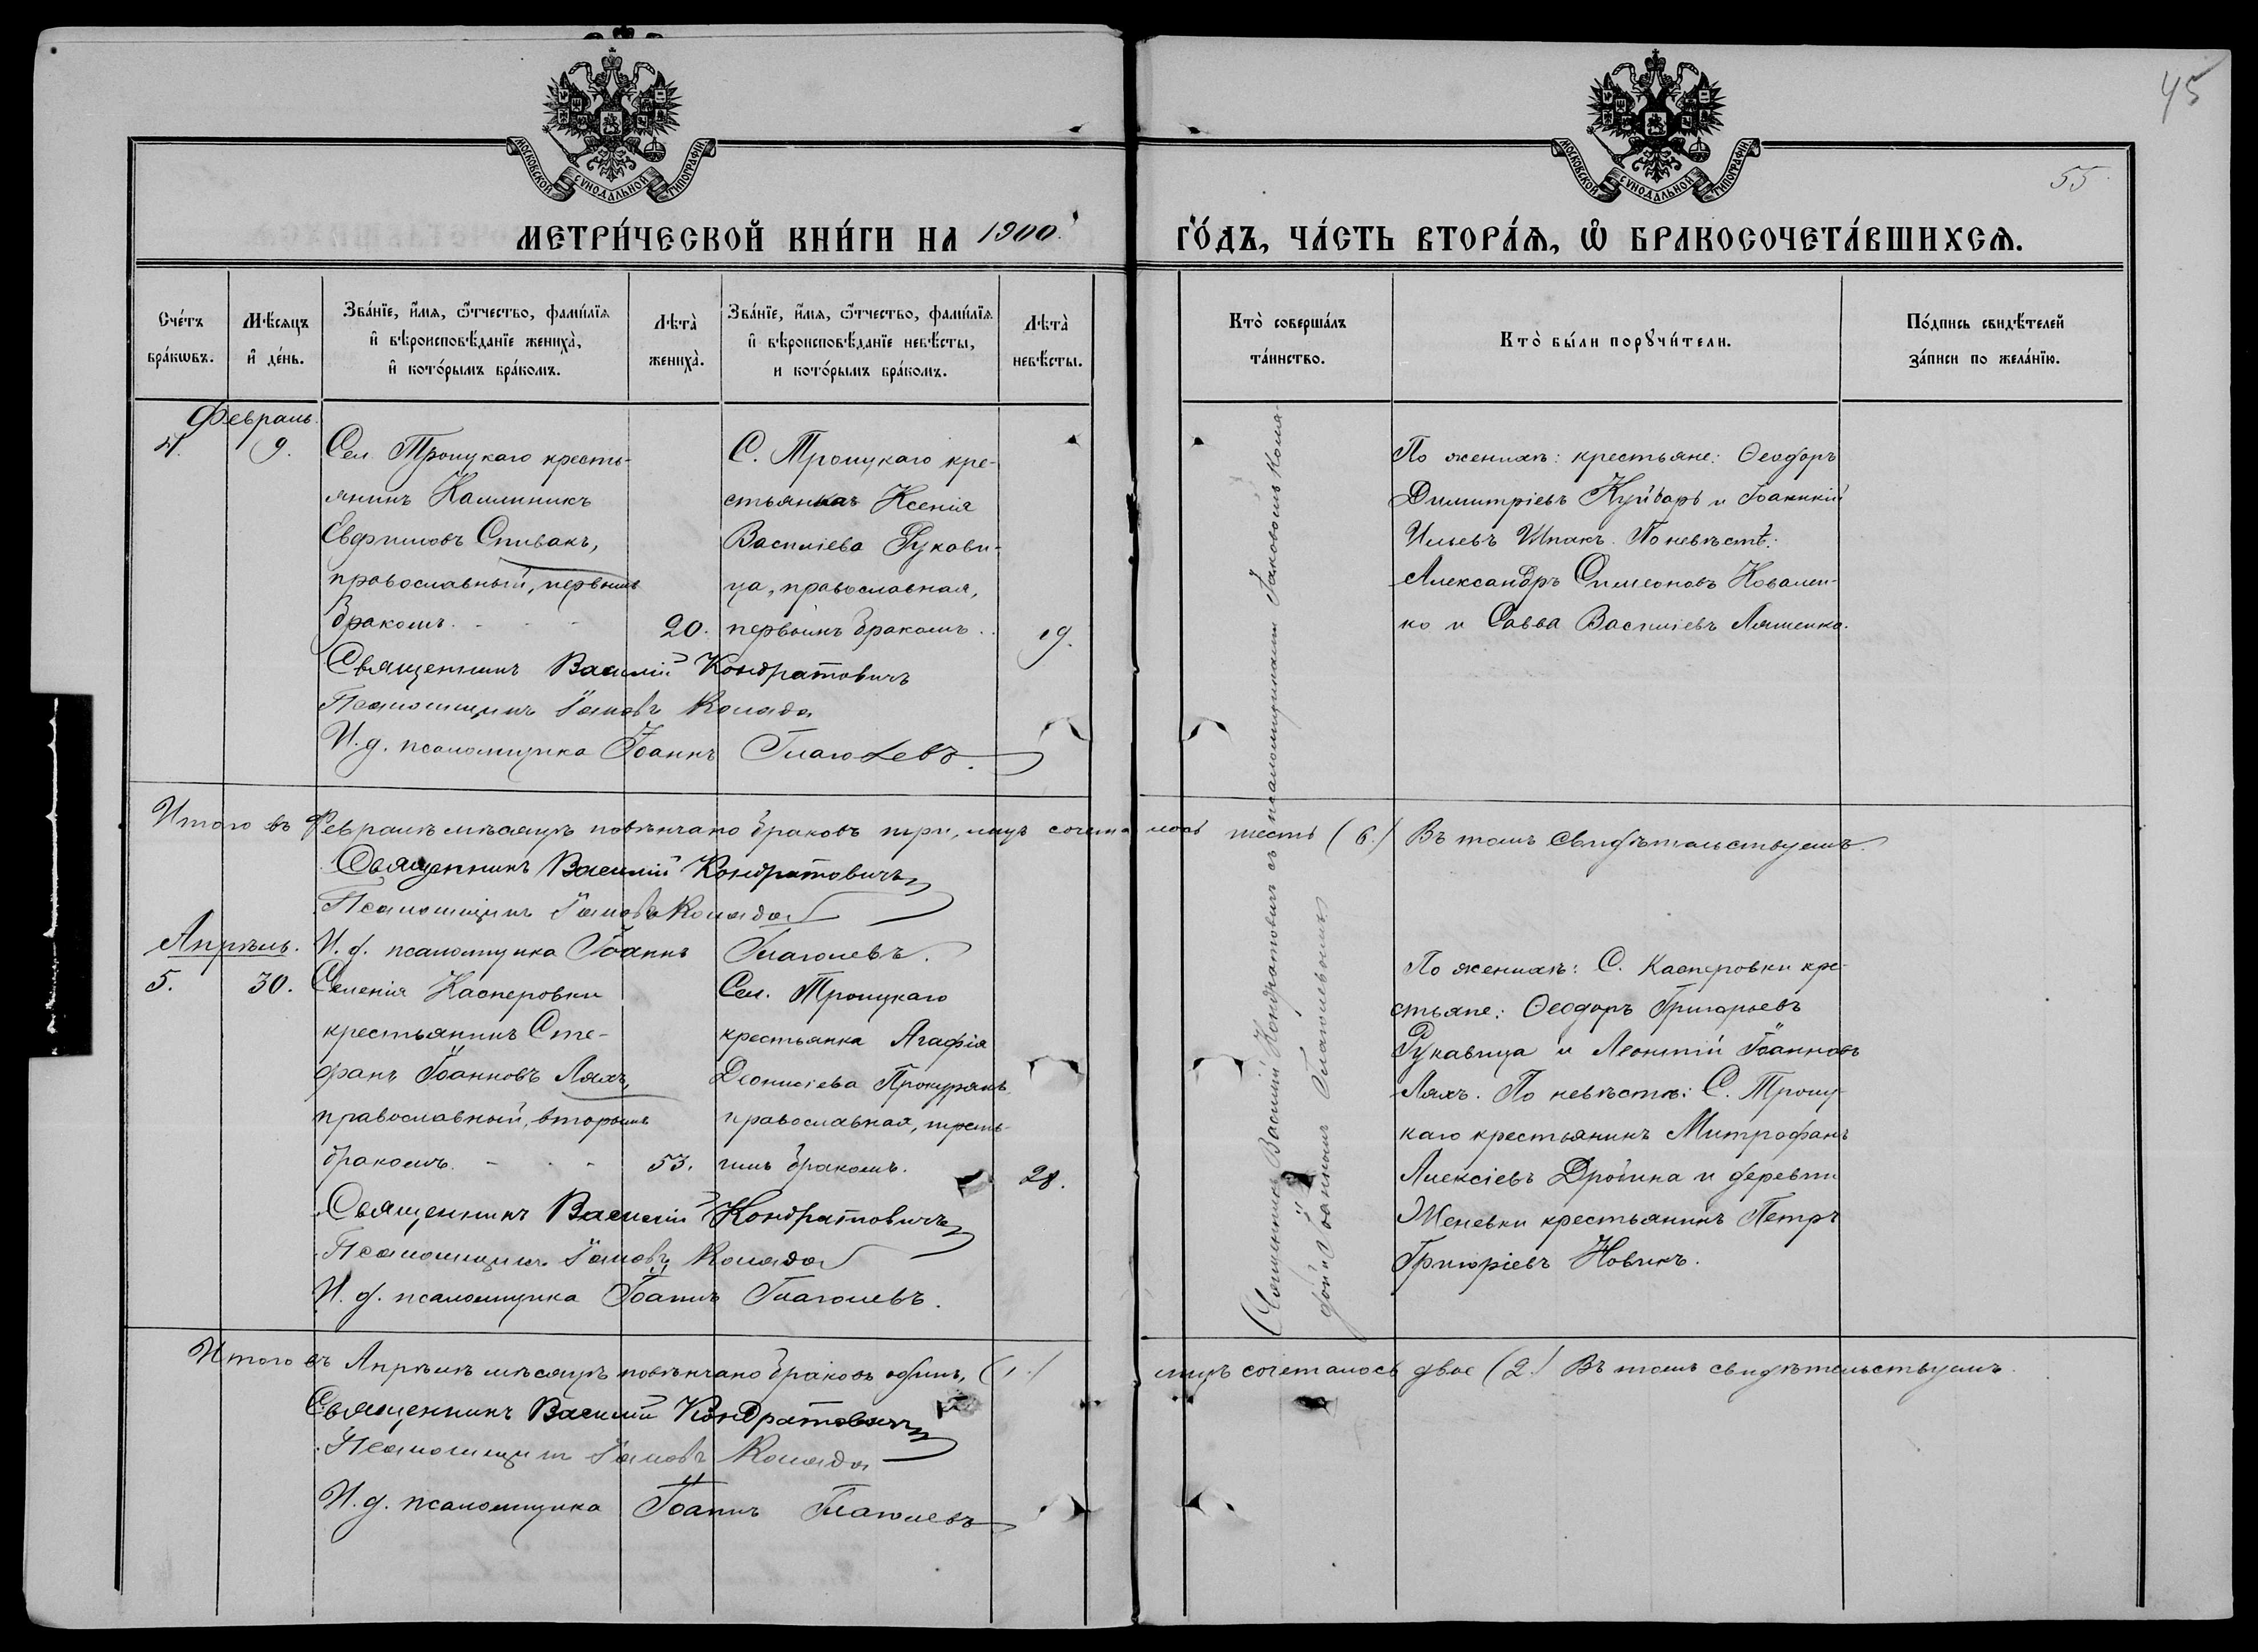 45
55
МОСКОВСКОЙ СУНОДАЛЬНОЙ ТИПОГРАФІИ
МОСКОВСКОЙ СУНОДАЛЬНОЙ ТИПОГРАФІИ
МЕТРИ́ЧЕСКОЙ КНИ́ГИ НА 1900.
ГО́ДЪ, ЧА́СТЬ ВТОРА́Я, Ѡ БРАКОСОЧЕТА́ВШИХСЯ.
Сче́тъ бра́кѡвъ.
Мѣ́сяцъ и де́нь.
Зва́нїе, и́мя, ѻ́тчество, фами́лїя и вѣроисповѣ́данїе жениха̀, и кото́рымъ бра́комъ.
Лѣта̀ жениха̀.
Зва́нїе, и́мя, ѻ́тчество, фами́лїя и вѣроисповѣ́данїе невѣ́сты, и кото́рымъ бра́комъ.
Лѣта̀ невѣ́сты.
Кто̀ соверша́лъ та́инство.
Кто̀ бы́ли порꙋчи́тели.
По́дпись свидѣ́телей за́писи по жела́нїю.
Февраль.
4. 9.
Сел. Троицкаго кресть-
янинъ Каллиникъ
Евфимовъ Спивакъ,
православный, первымъ
бракомъ. - - -
20.
С. Троицкаго кре-
стьянка Ксенія
Василіева Рукави-
ца, православная,
первымъ бракомъ..
19.
Священникъ Василій Кондратовичъ
Псаломщикъ Іаковъ Коляда
И. д. псаломщика Іоаннъ Глаголевъ.
По женихѣ: крестьяне: Ѳеодоръ
Димитріевъ Куйбаръ и Іоанникій
Ильевъ Шпакъ. По невѣстѣ:
Александръ Симеоновъ Ковален-
ко и Савва Василіевъ Ляшенко.
Священникъ Василій Кондратовичъ съ псаломщиками Іаковомъ Коля-
дой и Іоанномъ Глаголевымъ
Итого въ Февралѣ мѣсяцѣ повѣнчано браковъ три, лицъ сочеталось шесть (6.) Въ томъ свидѣтельствуемъ.
Священникъ Василій Кондратовичъ
Псаломщикъ Іаковъ Коляда
И. д. псаломщика Іоаннъ Глаголевъ.
Апрѣль.
5. 30.
Селенія Касперовки
крестьянинъ Сте-
фанъ Іоанновъ Ляхъ,
православный, вторымъ
бракомъ. - - -
53.
Сел. Троицкаго
крестьянка Агафія
Діонисіева Прокурякъ,
православная, треть-
имъ бракомъ.
28.
Священникъ Василій Кондратовичъ
Псаломщикъ Іаковъ Коляда
И. д. псаломщика Іоаннъ Глаголевъ.
По женихѣ: С. Касперовки кре-
стьяне: Ѳеодоръ Григорьевъ
Рукавица и Леонтій Іоанновъ
Ляхъ. По невѣстѣ: С. Троиц-
каго крестьянинъ Митрофанъ
Алексіевъ Дробина и деревни
Женевки крестьянинъ Петръ
Григоріевъ Новикъ.
Итого въ Апрѣлѣ мѣсяцѣ повѣнчано браковъ одинъ, (1.) лицъ сочеталось двое (2.) Въ томъ свидѣтельствуемъ.
Священникъ Василій Кондратовичъ
Псаломщикъ Іаковъ Коляда
И. д. псаломщика Іоаннъ Глаголевъ